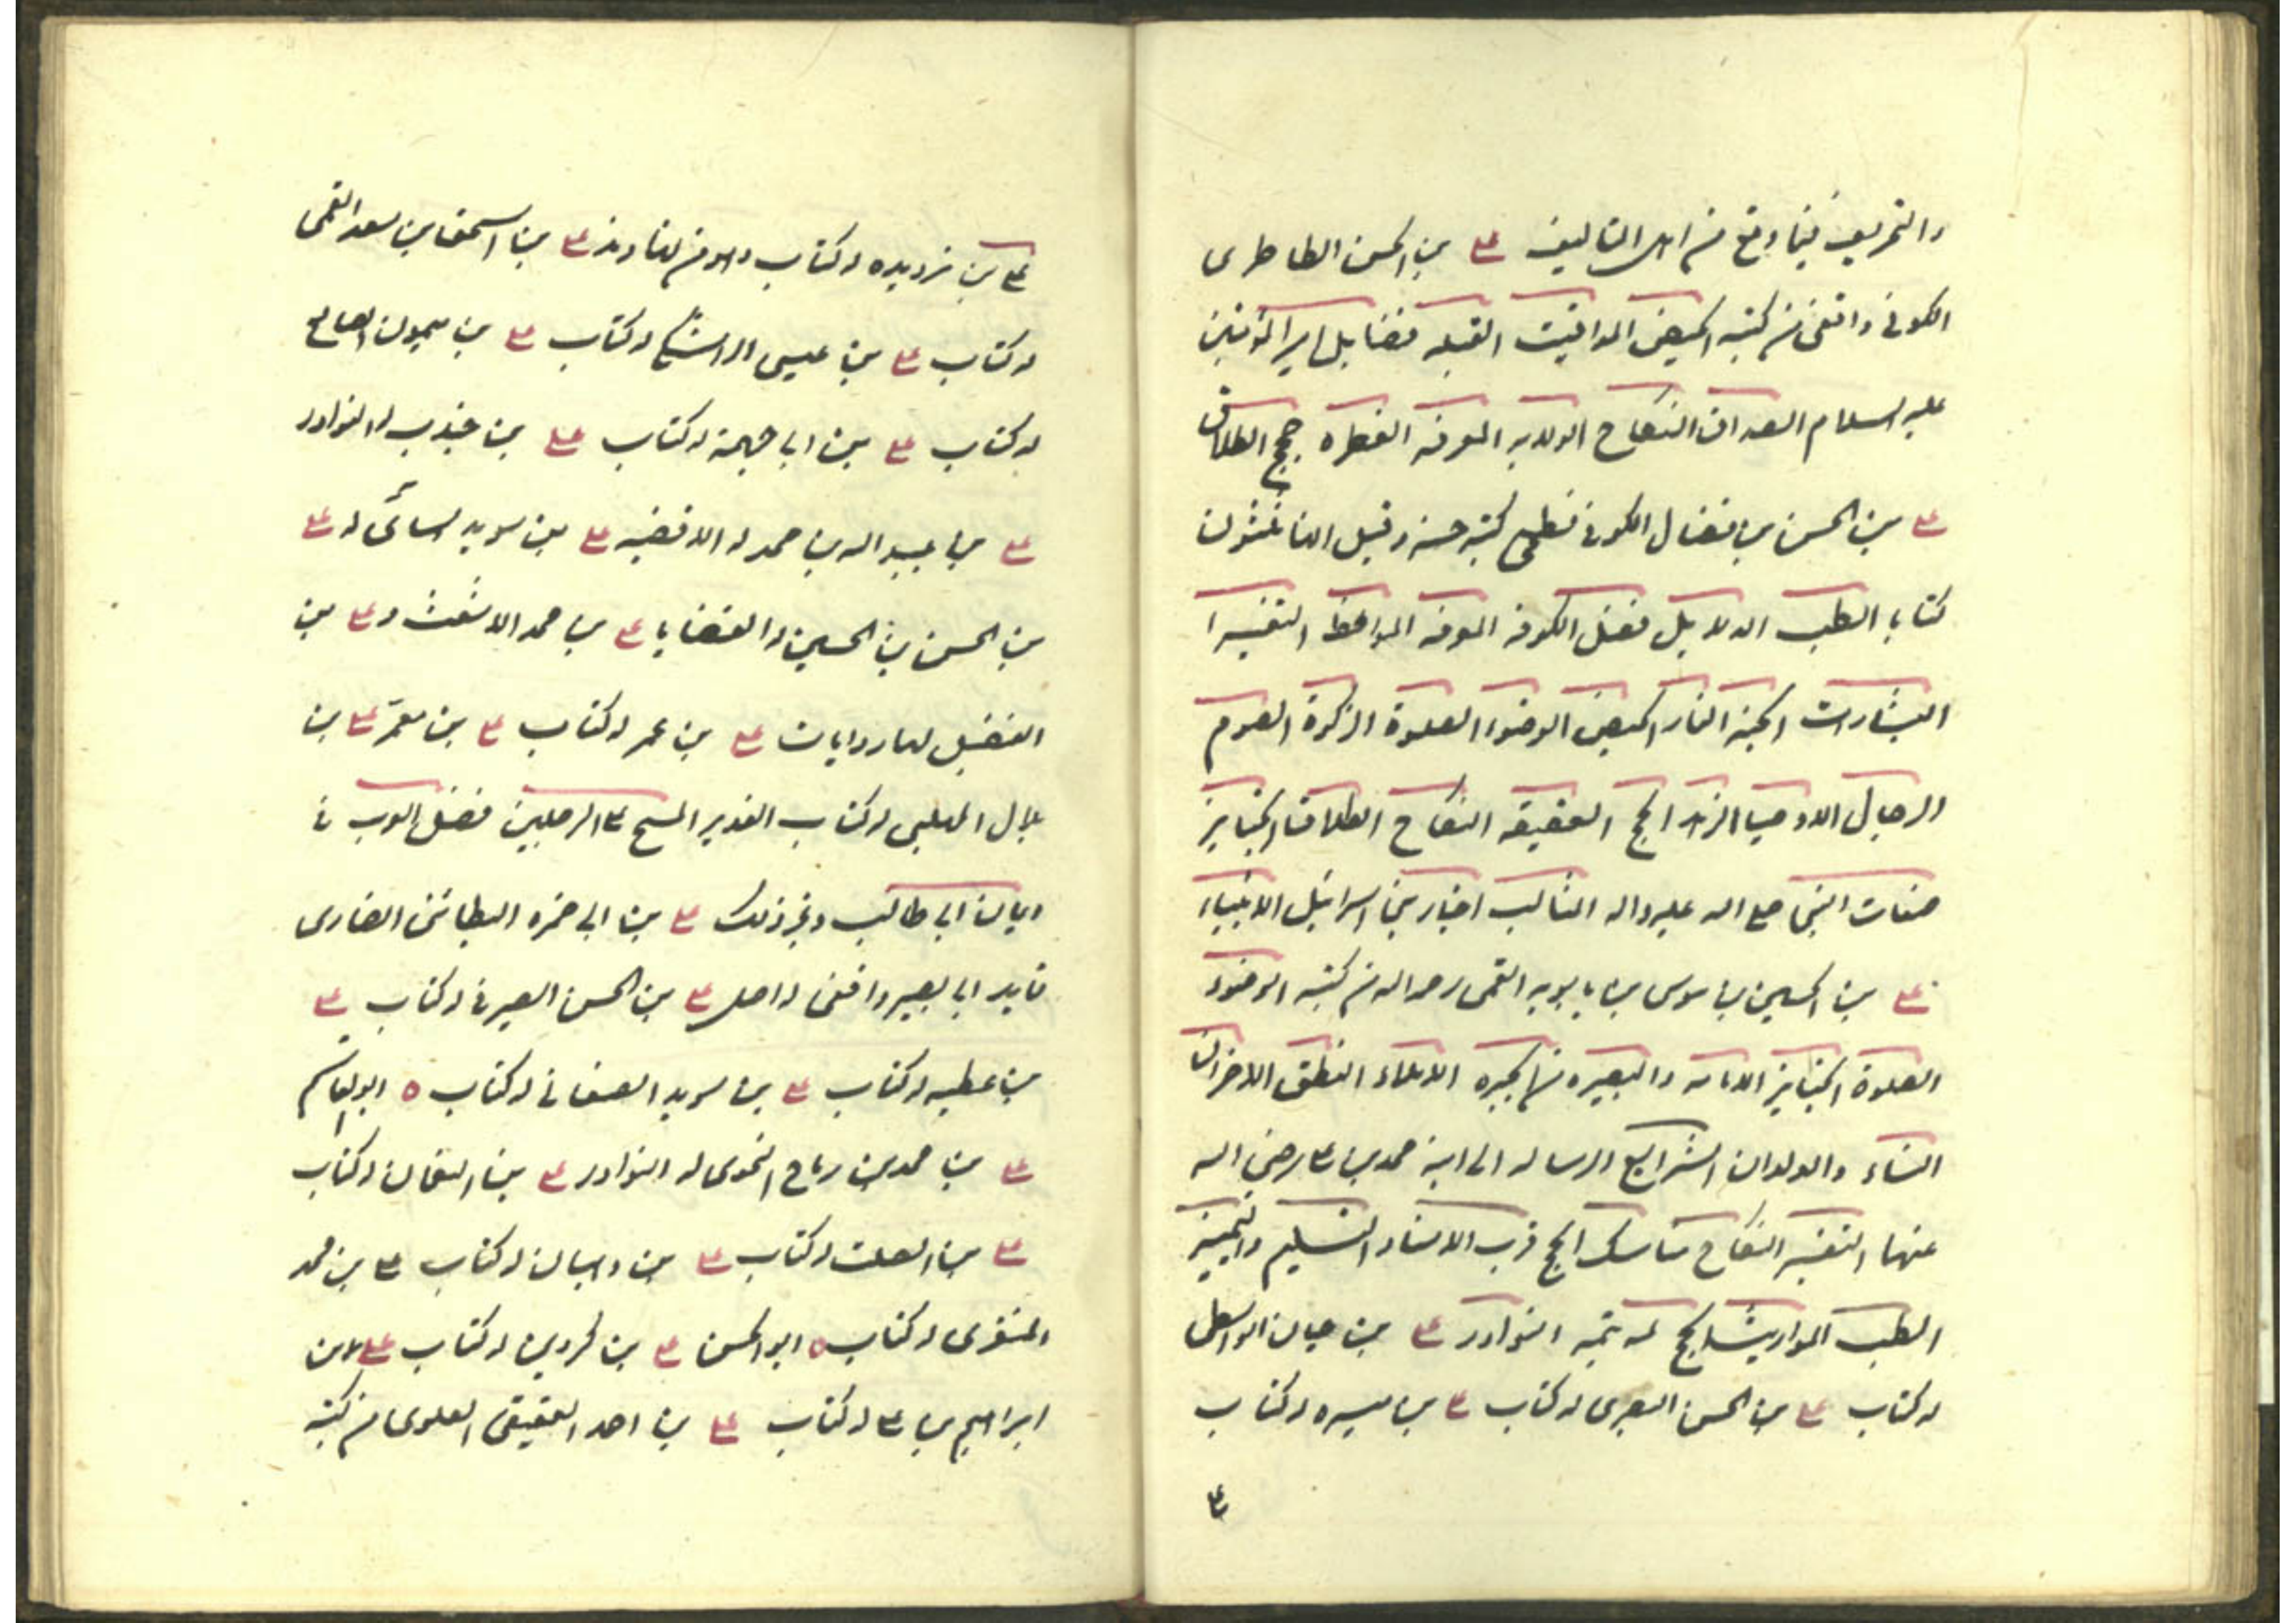 والتحريف فيما وقع من اهل التاليف علي بن الحسن الطاطرى
الكوفى واقفى من كتبه الحيض المواقيت القبله فضايل امير المؤمنين
عليه السلام الصداق النكاح الولايه المعرفه الفطره حجج الطلاق
علي بن الحسن بن فضال الكوفى فطحى كتبه حسنه وقيل انها ثلثون
كتابا الطب الدلايل فضل الكوفه المعرفه المواعظ التفسير
البشارات الجنه النار الحيض الوضوء الصلوة الزكوة الصوم
الرجال الاوصيا الزهد الحج العقيقه النكاح الطلاق الجنايز
صفات النبى صلى الله عليه واله المثالب اخبار بنى اسرائيل الانبياء
علي بن الحسين بن موسى بن بابويه القمى رحمه الله من كتبه الوضوء
الصلوة الجنايز الامامه والتبصره من الحيره الاملاء النطق الاخوان
النساء والولدان الشرايع الرساله الى ابنه محمد بن علي رضى الله
عنهما التفسير النكاح مناسك الحج قرب الاسناد التسليم والتمييز
الطب المواريث الحج لم يتمه النوادر علي بن حيان الواسطى
له كتاب علي بن الحسن البصرى له كتاب علي بن ميسره له كتاب
علي
علي بن زيدويه له كتاب وهو من نهاوند علي بن اسحق بن سعد القمى
له كتاب علي بن عيسى الراشد له كتاب علي بن ميمون الصايغ
له كتاب علي بن ابى جهمه له كتاب علي بن جندب له النوادر
علي بن عبيد الله بن محمد له الاقضيه علي بن سويد السائى له علي
بن الحسن بن الحسين له القضايا علي بن محمد الاشعث و علي بن
الفضيل لهما روايات علي بن عمر له كتاب علي بن معمر علي بن
بلال المهلبى له كتاب الغدير المسح على الرجلين فضل العرب فى
ايمان ابى طالب وغير ذلك علي بن ابى حمزه البطائنى انصارى
قايد ابى بصير واقفى له اصل علي بن الحسن الصيرفى له كتاب علي
بن عطيه له كتاب علي بن سويد الصنعانى له كتاب ابو القاسم
علي بن محمد بن رباح النحوى له النوادر علي بن النعمان له كتاب
علي بن الصلت له كتاب علي بن وهبان له كتاب علي بن محمد
المنقرى له كتاب ابو الحسن علي بن كردين له كتاب علي بن
ابراهيم بن علي له كتاب علي بن احمد العقيقى العلوى من كتبه